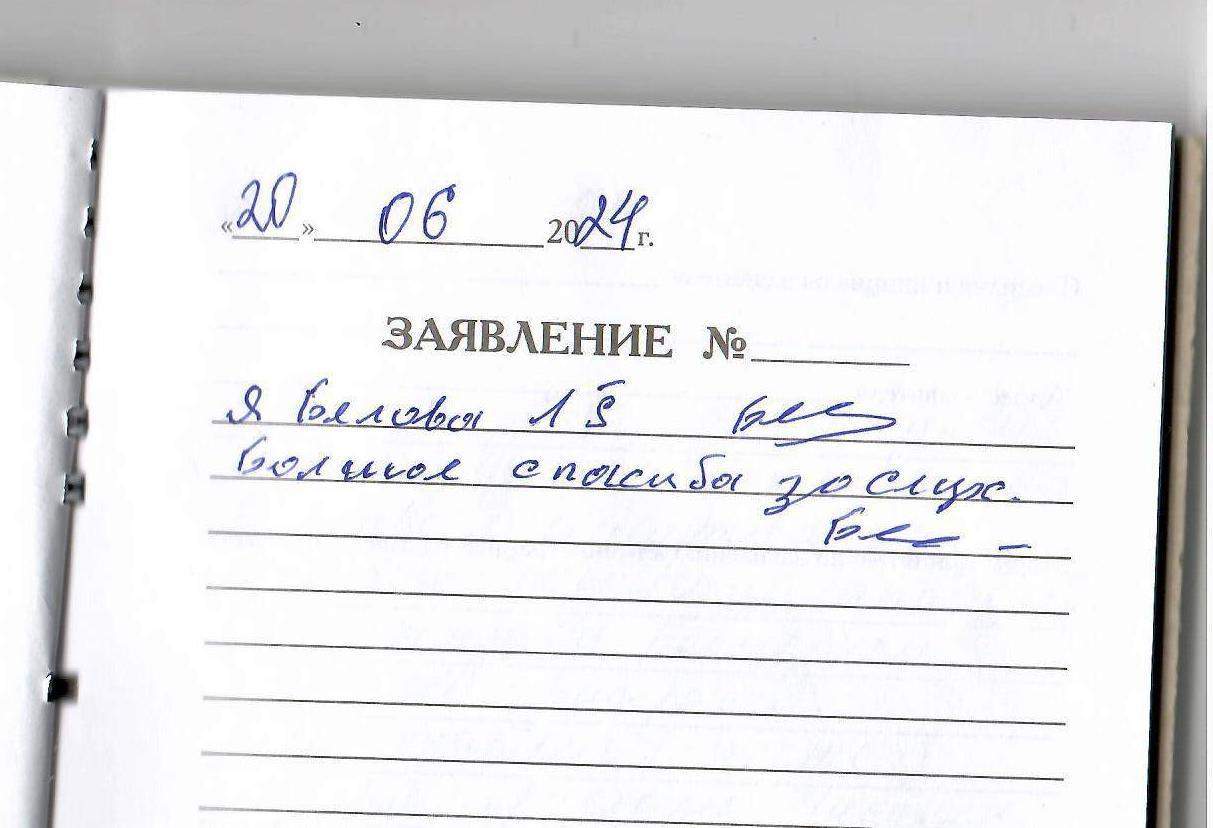 «20» 06 2024 г.
ЗАЯВЛЕНИЕ №
Я Белова
Болшое спасиба за слух.